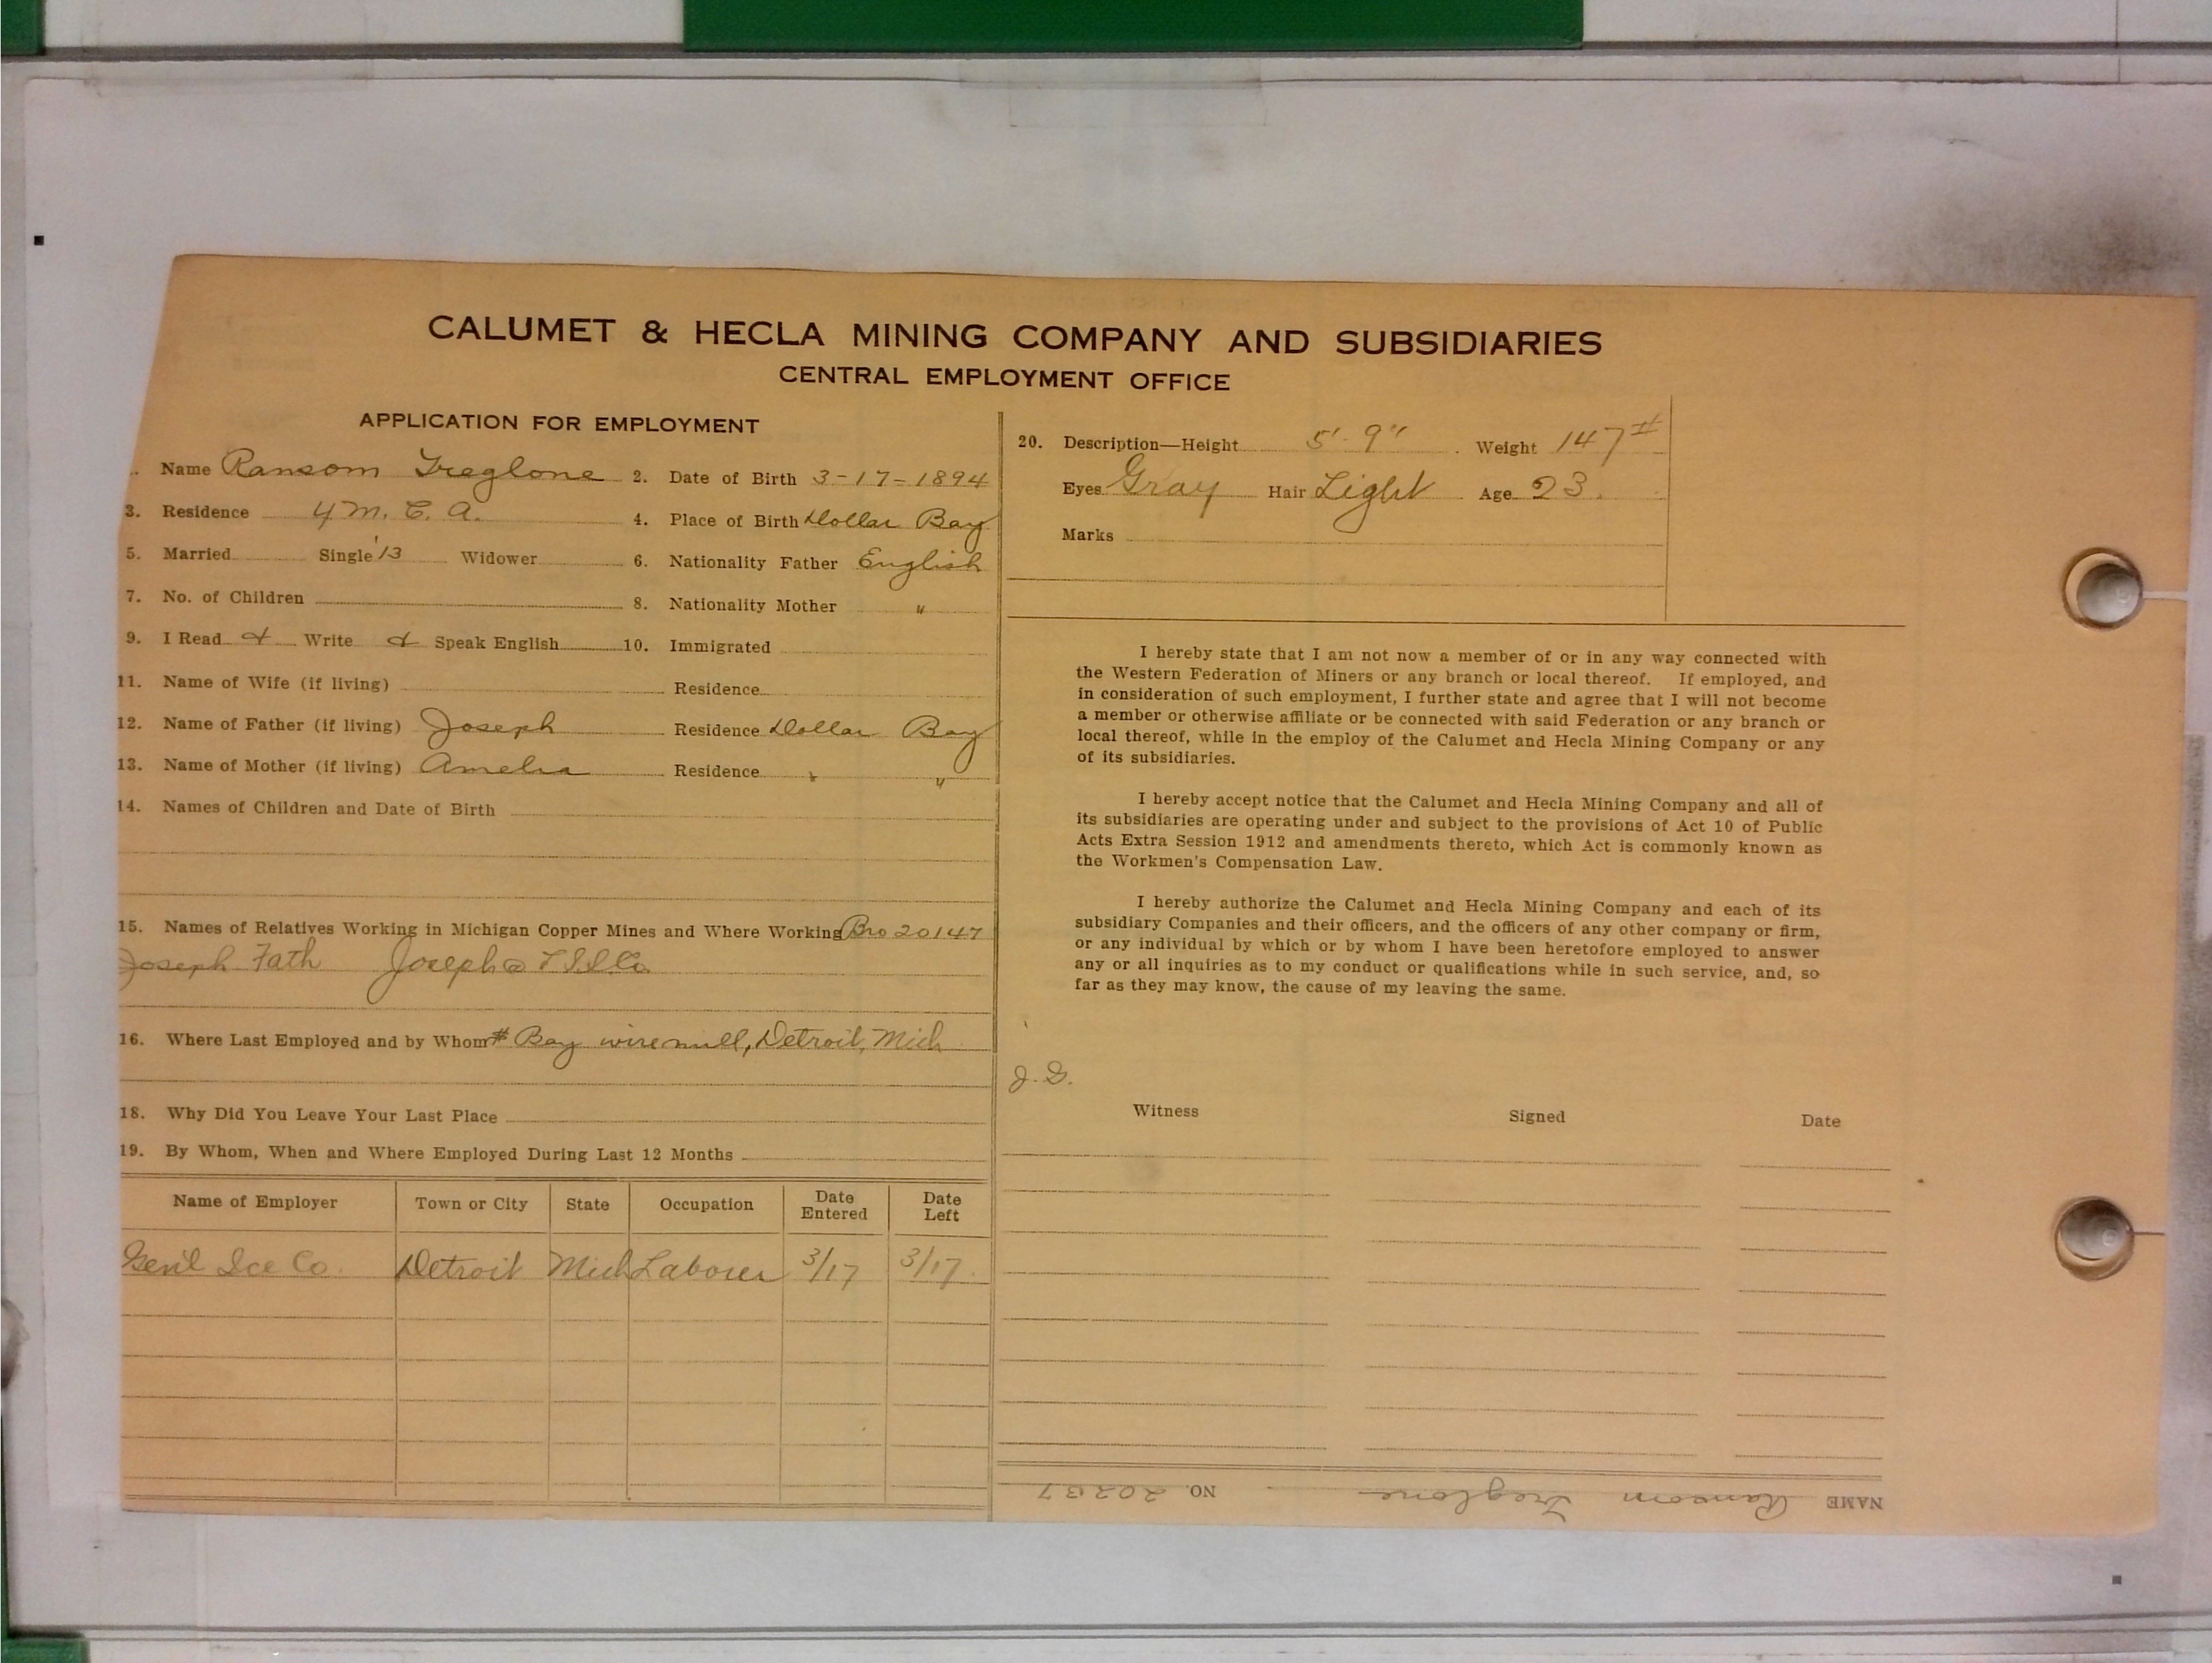 CALUMET & HECLA MINING COMPANY AND SUBSIDIARIES
CENTRAL EMPLOYMENT OFFICE
APPLICATION FOR EMPLOYMENT
Name Ransom Treglone 2. Date of Birth 3-17-1894
3. Residence Y M. C. A. 4. Place of Birth Dollar Bay
5. Married Single '13 Widower 6. Nationality Father English
7. No. of Children 8. Nationality Mother "
9. I Read & Write & Speak English 10. Immigrated
11. Name of Wife (if living) Residence
12. Name of Father (if living) Joseph Residence Dollar Bay
13. Name of Mother (if living) Amelia Residence " "
14. Names of Children and Date of Birth
15. Names of Relatives Working in Michigan Copper Mines and Where Working Bro 20147
Joseph Fath Joseph @
16. Where Last Employed and by Whom # Bay wire mill, Detroit, Mich
18. Why Did You Leave Your Last Place
19. By Whom, When and Where Employed During Last 12 Months
Name of Employer Town or City State Occupation Date Entered Date Left
Gen'l Ice Co. Detroit Mich Laborer 3/17 3/17.
20. Description—Height 5'-9" Weight 147#
Eyes Gray Hair Light Age 23.
Marks
I hereby state that I am not now a member of or in any way connected with
the Western Federation of Miners or any branch or local thereof. If employed, and
in consideration of such employment, I further state and agree that I will not become
a member or otherwise affiliate or be connected with said Federation or any branch or
local thereof, while in the employ of the Calumet and Hecla Mining Company or any
of its subsidiaries.
I hereby accept notice that the Calumet and Hecla Mining Company and all of
its subsidiaries are operating under and subject to the provisions of Act 10 of Public
Acts Extra Session 1912 and amendments thereto, which Act is commonly known as
the Workmen's Compensation Law.
I hereby authorize the Calumet and Hecla Mining Company and each of its
subsidiary Companies and their officers, and the officers of any other company or firm,
or any individual by which or by whom I have been heretofore employed to answer
any or all inquiries as to my conduct or qualifications while in such service, and, so
far as they may know, the cause of my leaving the same.
Witness Signed Date
NAME Ransom Treglone NO. 20237